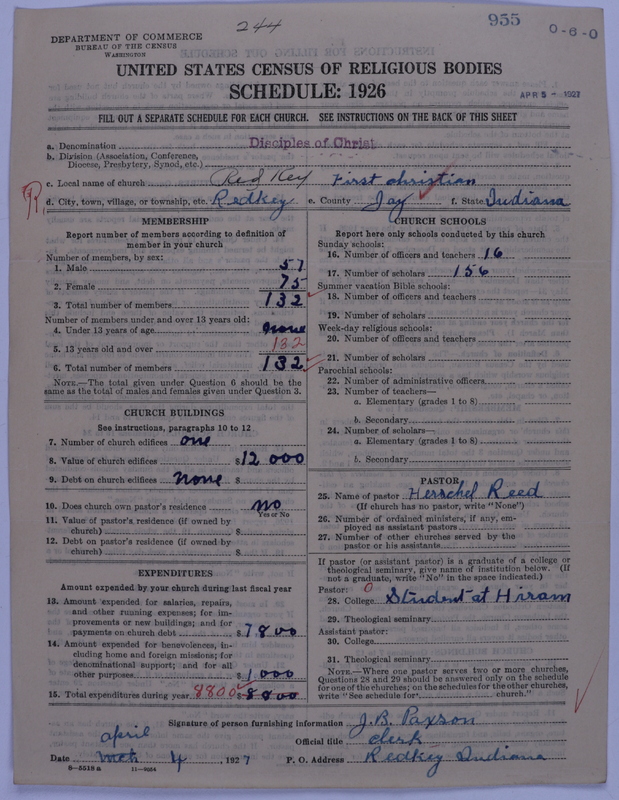 244
955
0-6-0
DEPARTMENT OF COMMERCE
BUREAU OF THE CENSUS
WASHINGTON
UNITED STATES CENSUS OF RELIGIOUS BODIES
SCHEDULE: 1926
APR 5 - 1927
FILL OUT A SEPARATE SCHEDULE FOR EACH CHURCH. SEE INSTRUCTIONS ON THE BACK OF THIS SHEET
a. Denomination Disciples of Christ
b. Division (Association, Conference,
Diocese, Presbytery, Synod, etc.)
c. Local name of church Red Key First Christian
d. City, town, village, or township, etc. Redkey e. County Jay f. State Indiana
MEMBERSHIP
Report number of members according to definition of
member in your church
Number of members, by sex:
1. Male 57
2. Female 75
3. Total number of members 132
Number of members under and over 13 years old:
4. Under 13 years of age none
5. 13 years old and over 132
6. Total number of members 132
NOTE.—The total given under Question 6 should be the
same as the total of males and females given under Question 3.
CHURCH BUILDINGS
See instructions, paragraphs 10 to 12
7. Number of church edifices one
8. Value of church edifices $12 000
9. Debt on church edifices none $
10. Does church own pastor's residence no
Yes or No
11. Value of pastor's residence (if owned by
church) $
12. Debt on pastor's residence (if owned by
church) $
EXPENDITURES
Amount expended by your church during last fiscal year
13. Amount expended for salaries, repairs,
and other running expenses; for im-
provements or new buildings; and for
payments on church debt $7,800
14. Amount expended for benevolences, in-
cluding home and foreign missions; for
denominational support; and for all
other purposes 1,000
15. Total expenditures during year 8800 $8800
CHURCH SCHOOLS
Report here only schools conducted by this church
Sunday schools:
16. Number of officers and teachers 16
17. Number of scholars 156
Summer vacation Bible schools:
18. Number of officers and teachers
19. Number of scholars
Week-day religious schools:
20. Number of officers and teachers
21. Number of scholars
Parochial schools:
22. Number of administrative officers
23. Number of teachers—
a. Elementary (grades 1 to 8)
b. Secondary
24. Number of scholars—
a. Elementary (grades 1 to 8)
b. Secondary
PASTOR
25. Name of pastor Herschel Reed
(If church has no pastor, write "None")
26. Number of ordained ministers, if any, em-
ployed as assistant pastors
27. Number of other churches served by the
pastor or his assistants
If pastor (or assistant pastor) is a graduate of a college or
theological seminary, give name of institution below. (If
not a graduate, write "No" in the space indicated.)
Pastor: 0
28. College Student at Hiram
29. Theological seminary
Assistant pastor:
30. College
31. Theological seminary
NOTE.—Where one pastor serves two or more churches,
Questions 28 and 29 should be answered only on the schedule
for one of the churches; on the schedules for the other churches,
write "See schedule for church."
Signature of person furnishing information J.B. Paxson
Official title clerk
april
Date Mch 4, 1927 P. O. Address Redkey Indiana
8—5518 a 11—9054